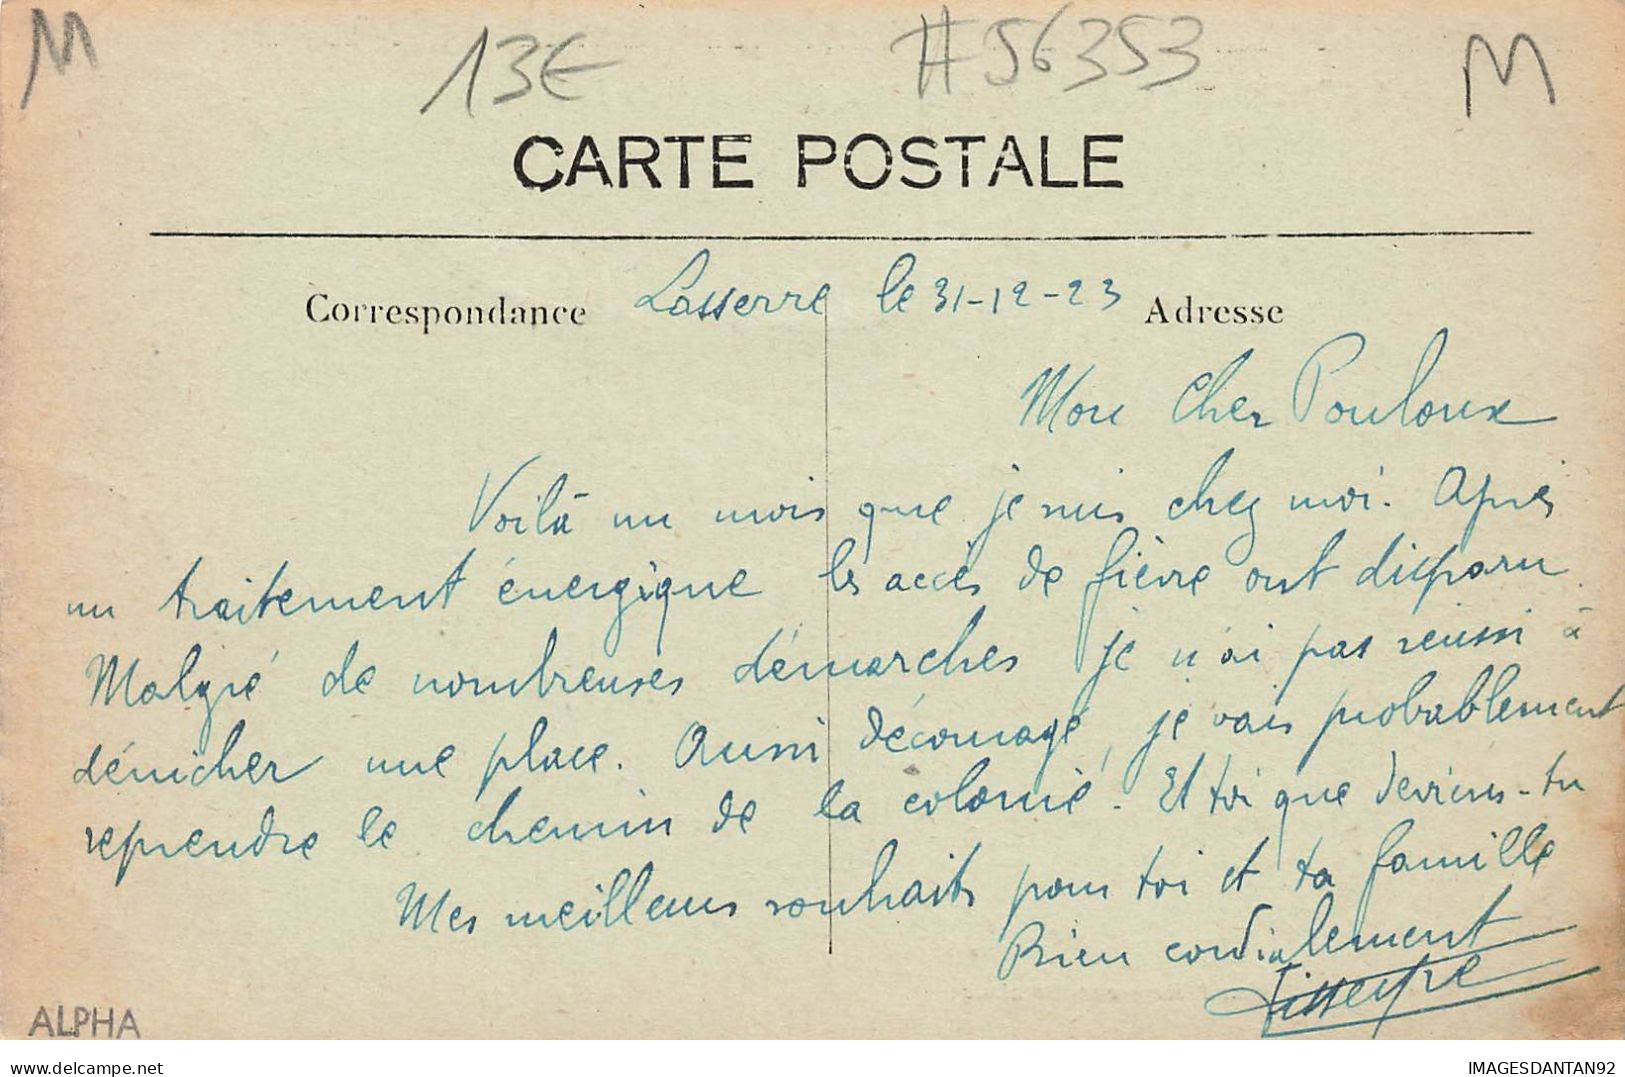 M 13€ #56353 M
CARTE POSTALE
Correspondance Lasserre le 31-12-23 Adresse
Mon Cher Pouloux
Voilà un mois que je suis chez moi. Après
un traitement énergique les accès de fièvre ont disparu.
Malgré de nombreuses démarches je n'ai pas réussi à
dénicher une place. Aussi découragé, je vais probablement
reprendre le chemin de la colonie. Et toi que deviens-tu
Mes meilleurs souhaits pour toi et ta famille
Bien cordialement
ALPHA
IMAGESDANTAN92
delcampe.net